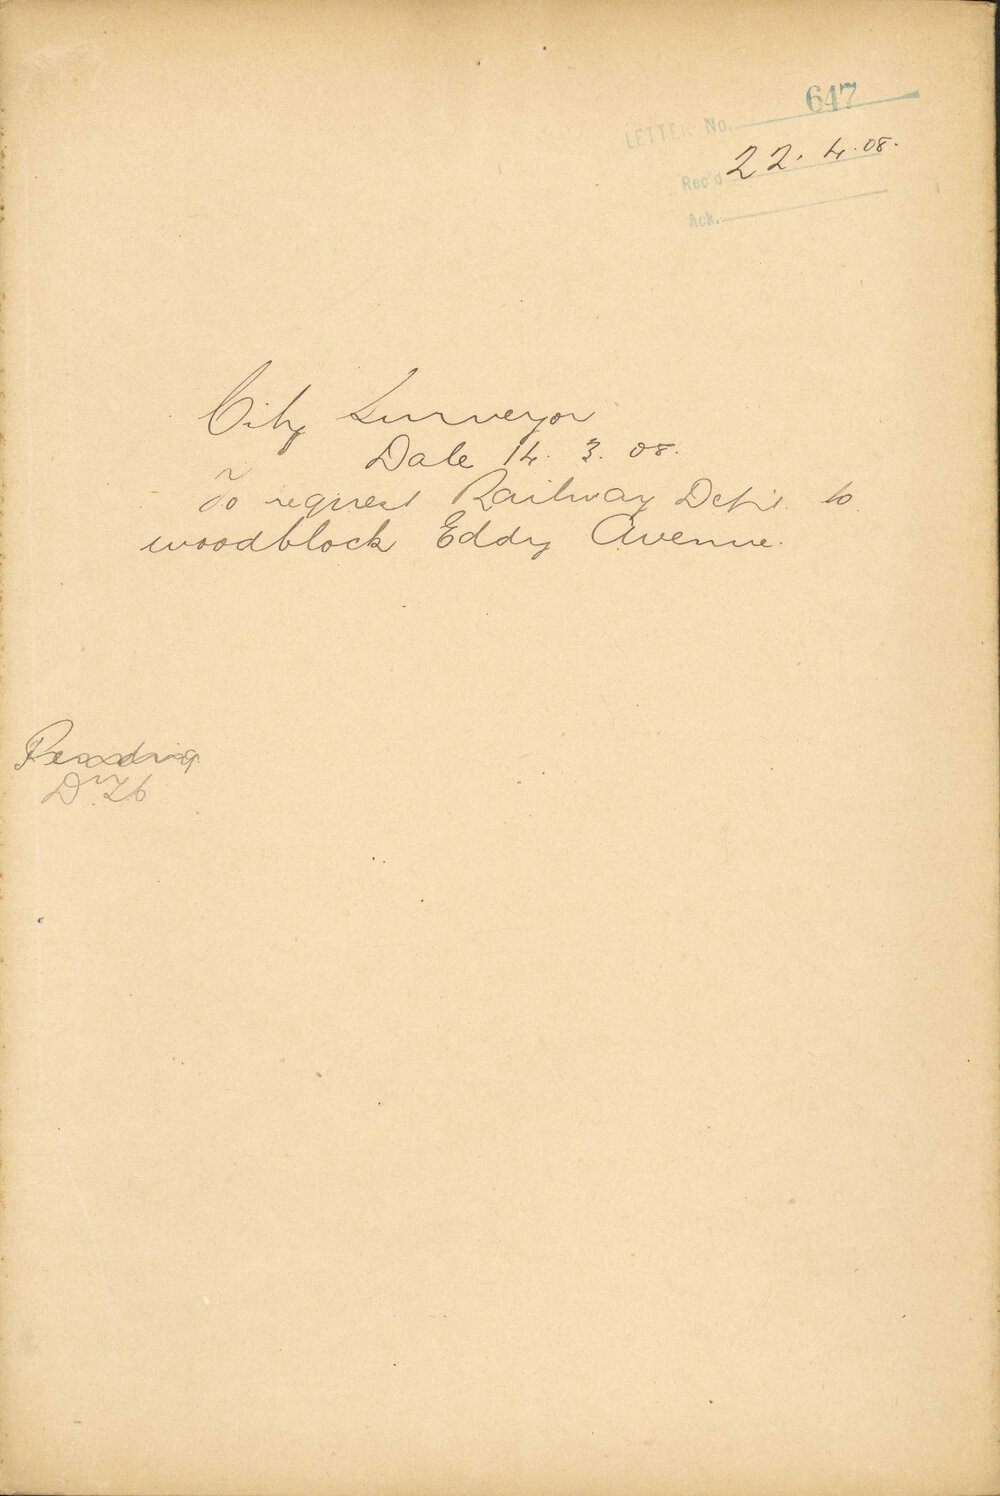 LETTER No. 647
Rec'd 22. 4. 08.
Ack.
City Surveyor
Date 14. 3. 08.
To request Railway Dept. to
woodblock Eddy Avenue.
Pending